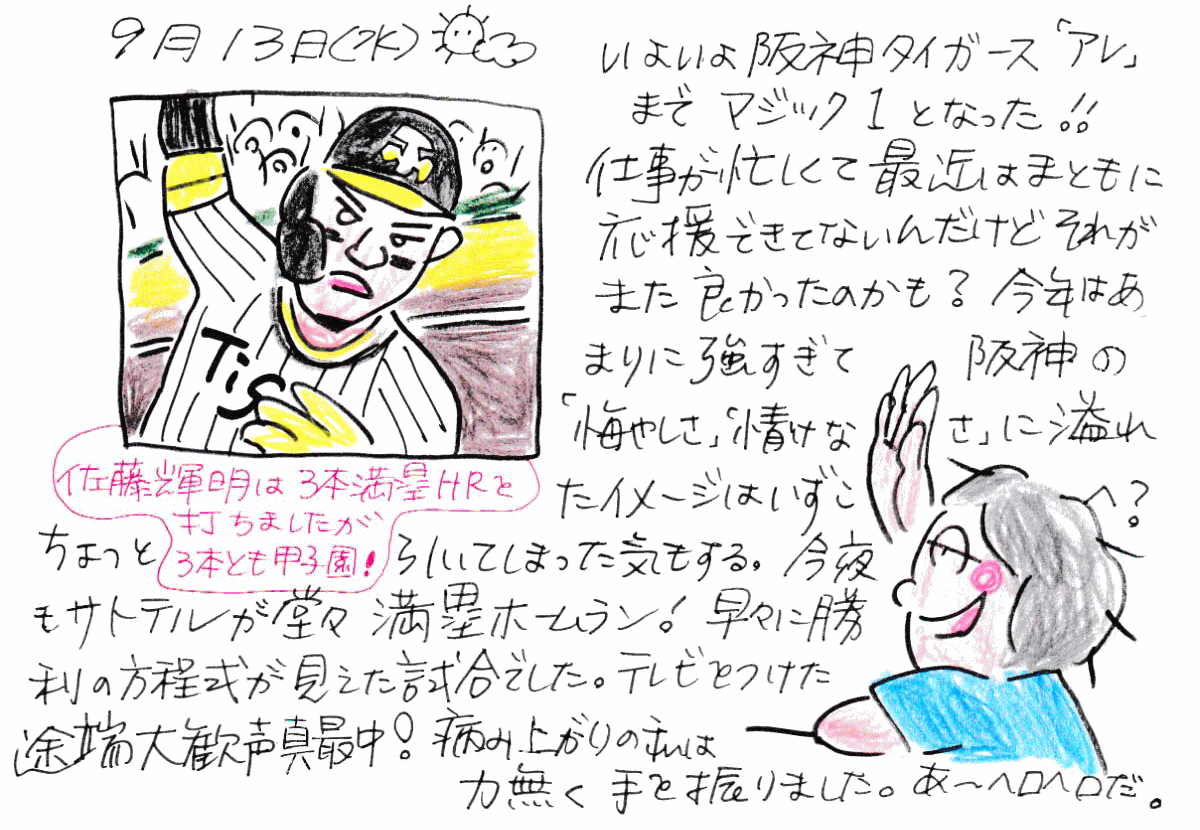 9月13日(水)
いよいよ阪神タイガース「アレ」
まで マジック1となった!!
仕事が忙しくて最近はまともに
応援できてないんだけどそれが
また良かったのかも?今年はあ
まりに強すぎて 阪神の
「悔やしさ」「情けな さ」に溢れ
たイメージはいずこ へ?
ちょっと 引いてしまった気もする。今夜
もサトテルが堂々 満塁ホームラン!早々に勝
利の方程式が見えた試合でした。テレビをつけた
途端大歓声真最中!病み上がりの私は
力無く手を振りました。あ〜ヘロヘロだ。
佐藤輝明は3本満塁HRを
打ちましたが
3本とも甲子園!
TiG